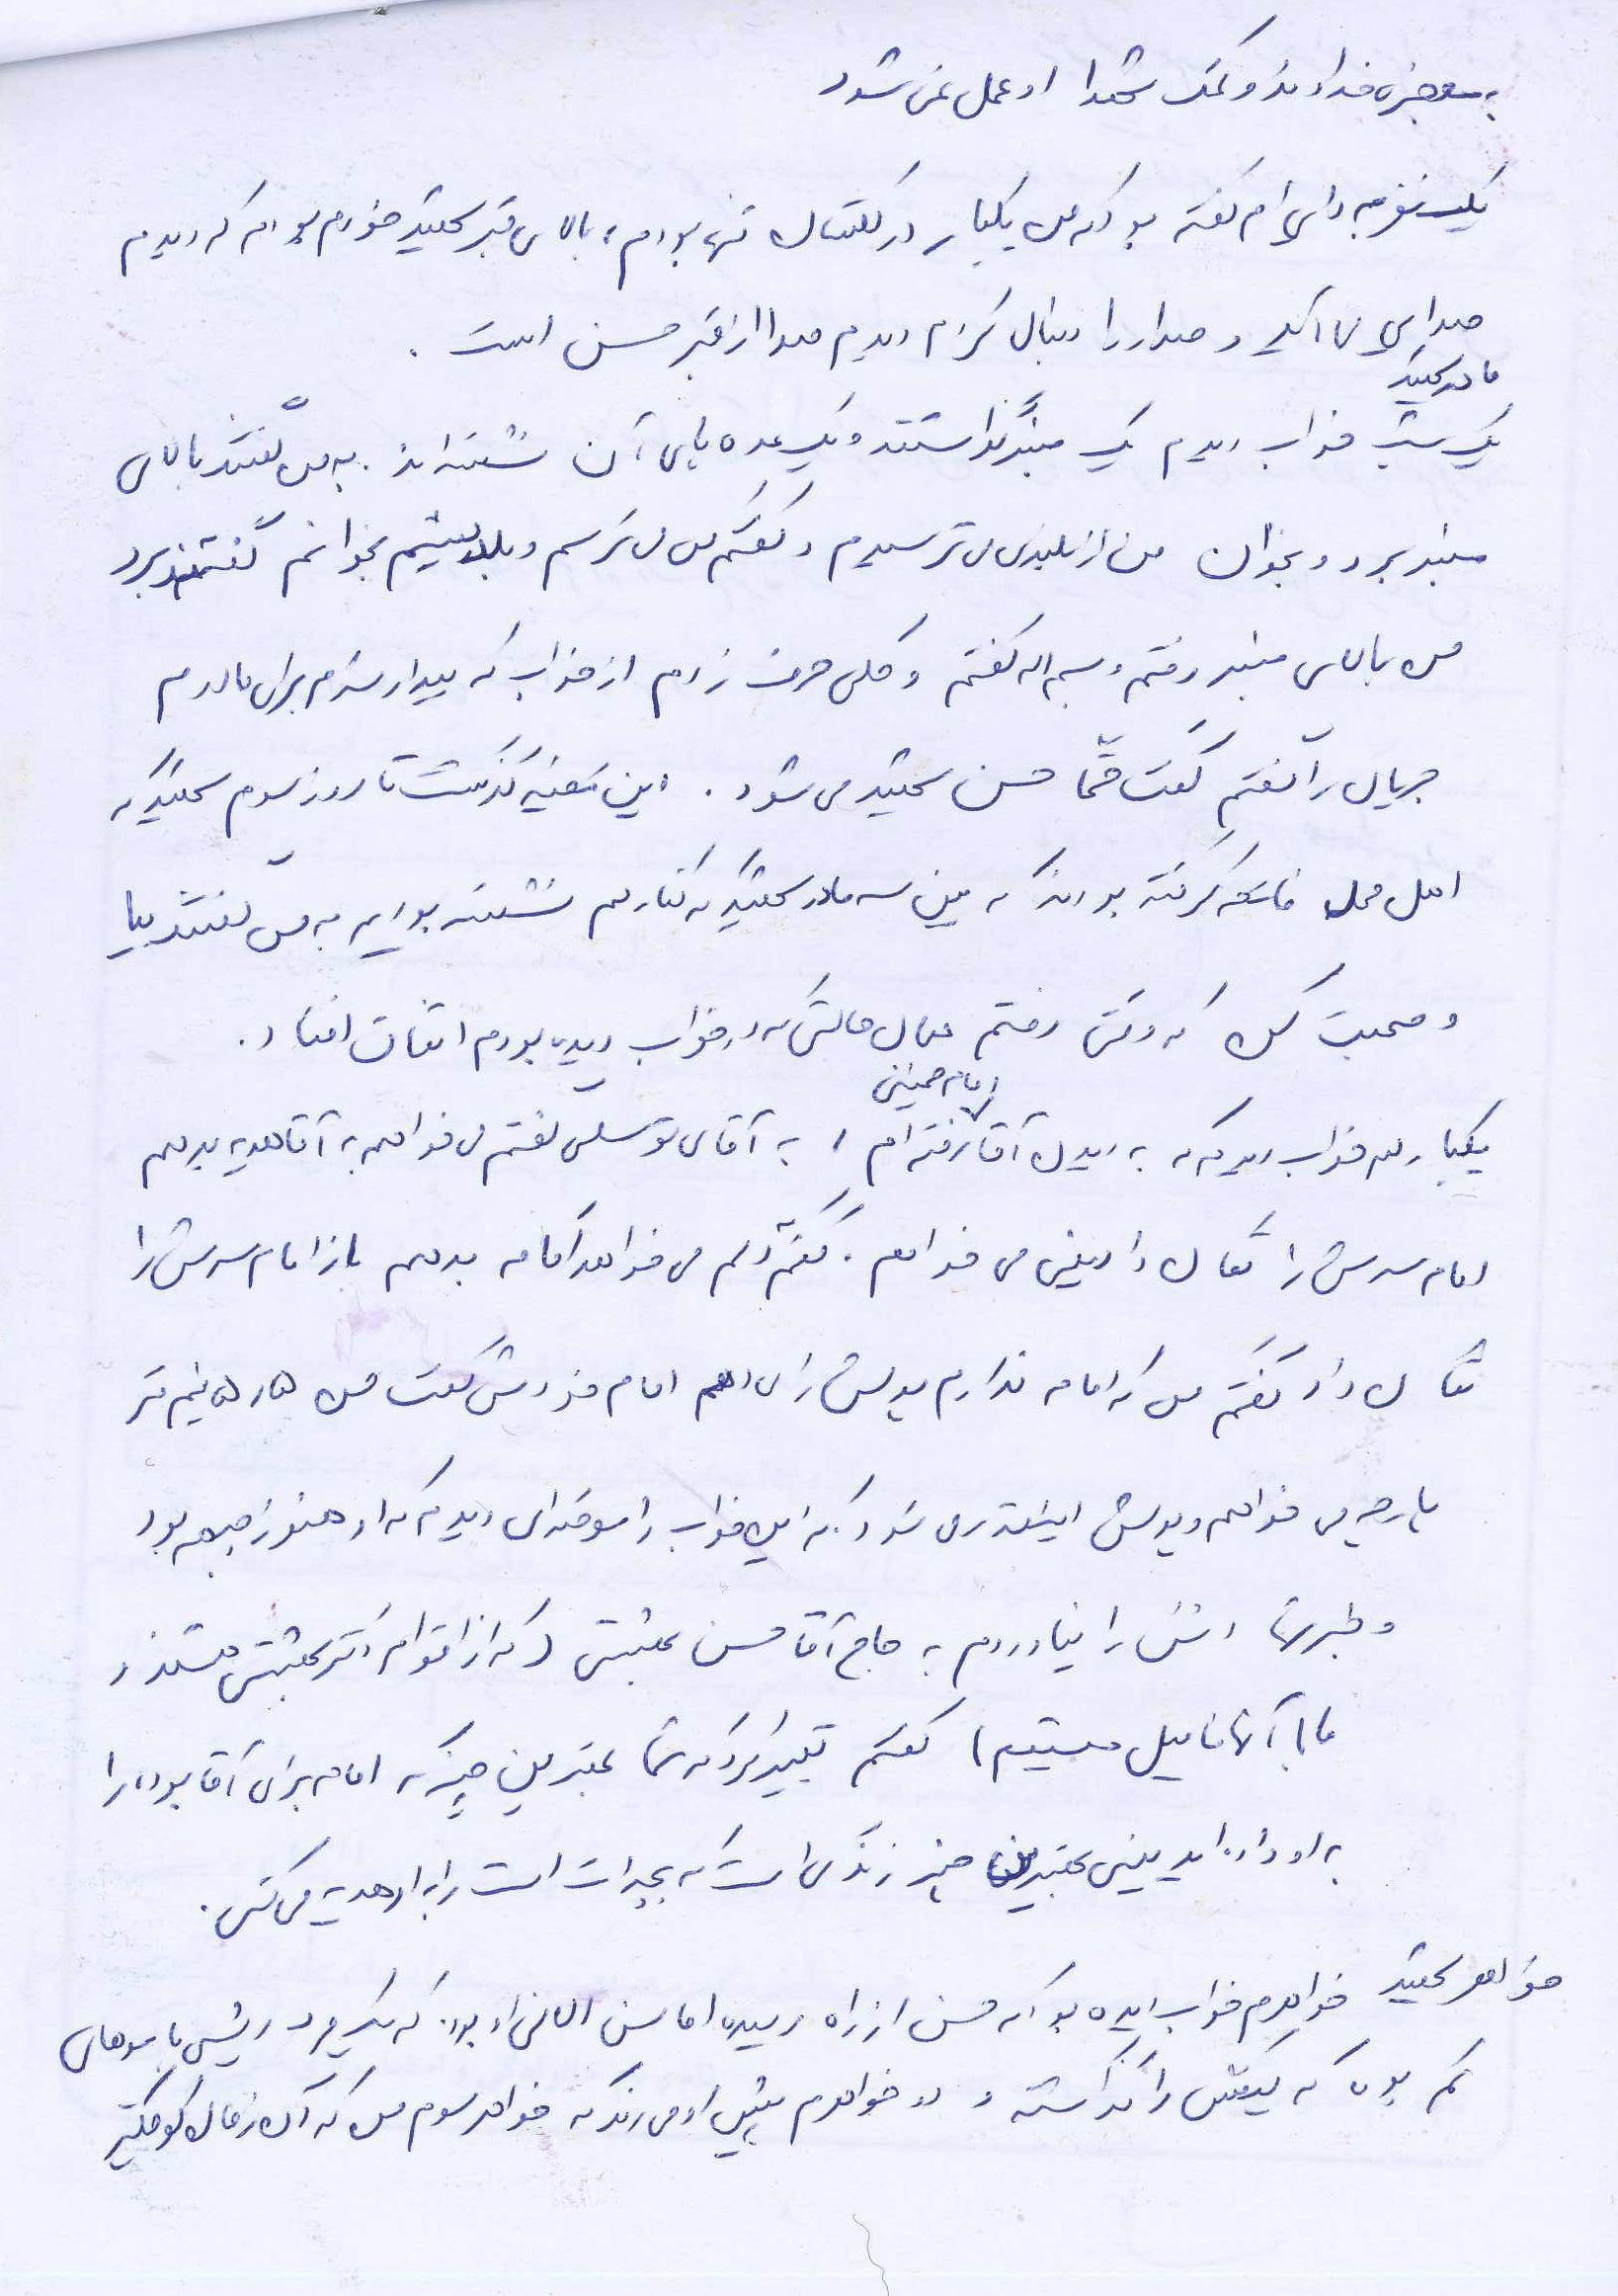 به معجزه خداوند و کمک شهدا او عمل نمی شود
یک نفر به دایی ام گفته بود که من یکبار در گلستان تنها بودم، بالای قبر شهید خودم بودم که دیدم
صدایی می آید و صدا را دنبال کردم دیدم صدا از قبر حسن است .
مادر شهید
یک شب خواب دیدم یک منبر گذاشتند و یک عده پای آن نشسته اند . به من گفتند بالای
منبر برو و بخوان من از بلندی می ترسیدم و گفتم من می ترسم و بلد نیستم بخوانم گفتند برو
من بالای منبر رفتم و بسم اله گفتم و کلی حرف زدم از خواب که بیدار شدم برای مادرم
جریان را گفتم گفت حتما حسن شهید می شود . این قضیه گذشت تا روز سوم شهید که
اهل محل فاتحه گرفته بودند که بین سه مادر شهید که کنار هم نشسته بودیم به من گفتند بیا
و صحبت کن که وقتی رفتم همان حالتی که در خواب دیده بودم اتفاق افتاد .
امام خمینی
یکبار هم خواب دیدم که به دیدن آقا رفته ام ، به آقای توسلی گفتم می خواهم به آقا هدیه بدهم
امام سرش را تکان داد یعنی می خواهم . گفتم دلم می خواهد اما به بدهم باز امام سرش را
تکان داد گفتم من که ندارم پولش را می دهم امام خودش گفت من ۵ نیم متر
پارچه می خواهم و پولش اینقدر می شود که این خواب را موقعه ای دیدم که او هنوز جبهه بود
و طبر را نیاوردم به حاج آقا حسن بهشتی ( که از اقوام دکتر بهشتی هستند و
ما با آنها فامیل هستیم ) گفتم تعبیر کرد که شما بهترین چیز که امام برای آقا بوده را
به او داده اید یعنی بهترین چیز زندگی است که بچه ات است را به او هدیه می کنی .
خواهر شهید خواهرم خواب دیده بود که حسن از راه رسیده اما سن الانی او بود که یک مرد ریش با موهای
کم بود که کیفش را گذاشته و دو خواهرم پیش او می روند که خواهر سوم من که آن زمان کوچکتر